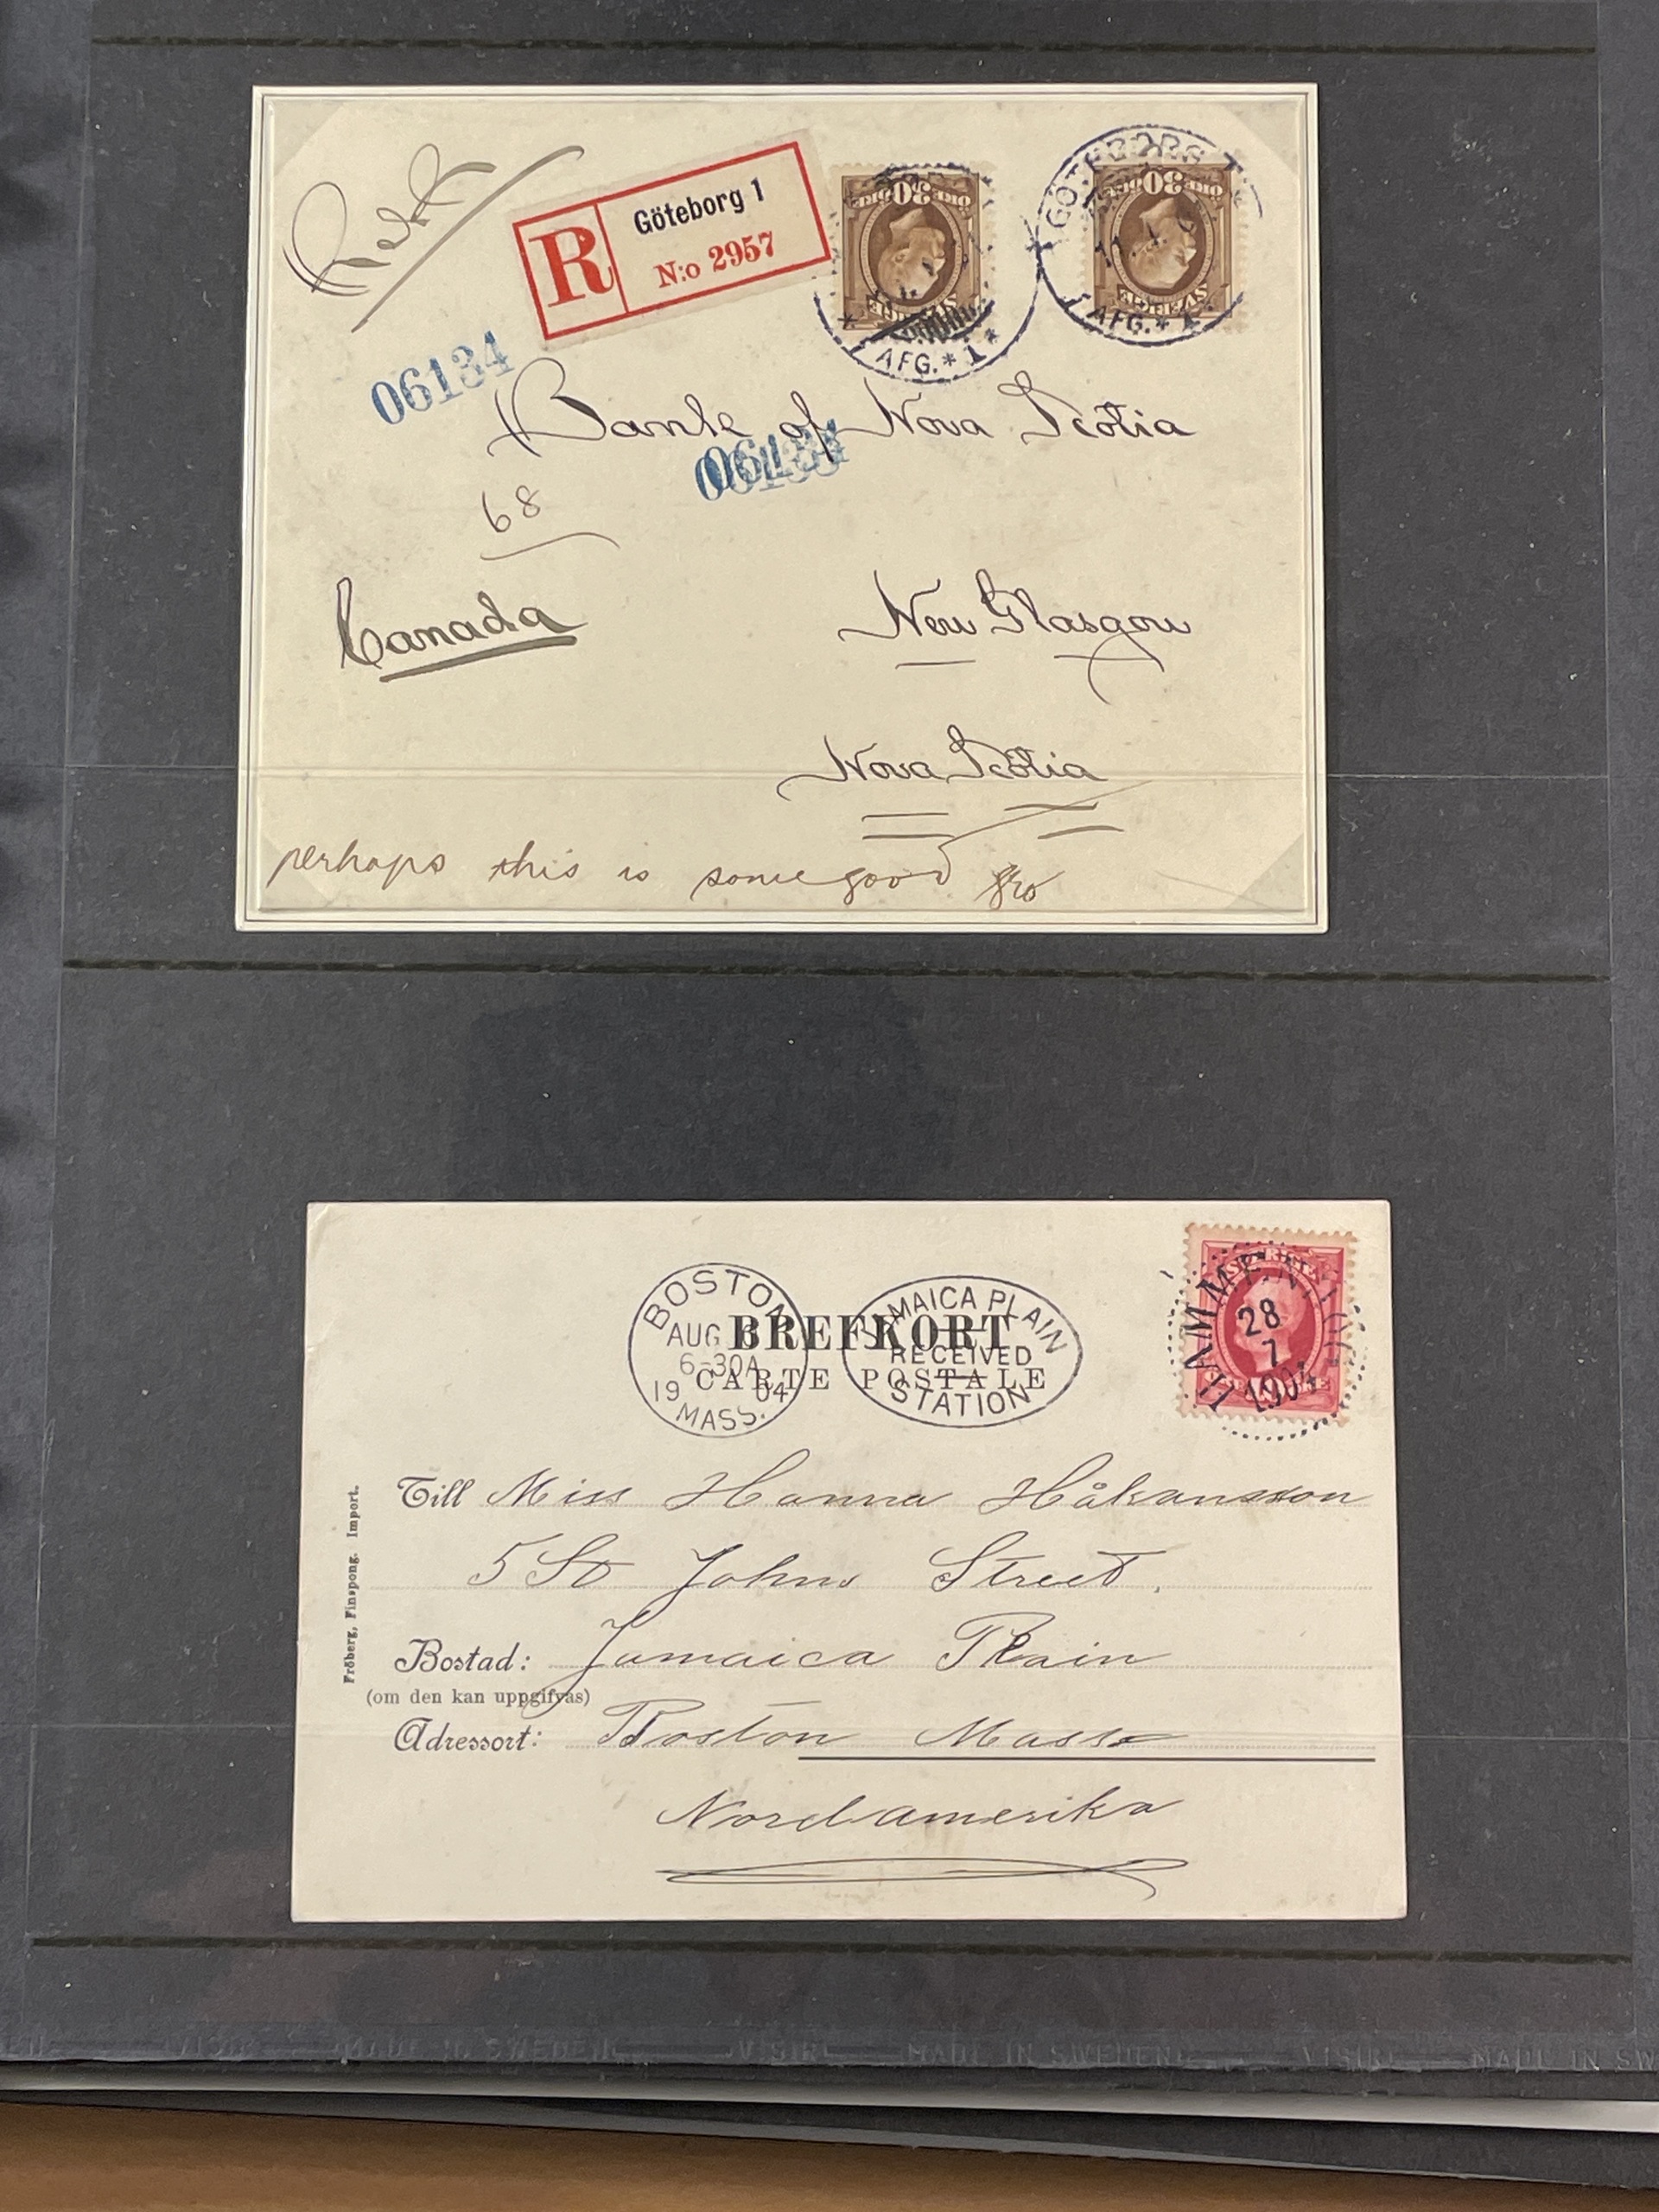 R
Göteborg 1
N:o 2957
30 ÖRE
SVERIGE
AFG. * 1 *
GÖTEBORG 1
30 ÖRE
SVERIGE
AFG. * 1 *
06134
Bank of Nova Scotia
68
Canada
New Glasgow
Nova Scotia
perhaps this is some good
BOSTON
AUG
6-30A
19 04
MASS.
JAMAICA PLAIN
RECEIVED
STATION
28
7
1904
BREFKORT
CARTE POSTALE
Till Miss Hanna Håkansson
5 St Johns Street.
Bostad: Jamaica Plain
(om den kan uppgifvas)
Adressort: Boston Mass
Nordamerika
Fröberg, Finspong. Import.
VISIR MADE IN SWEDEN VISIR MADE IN SWEDEN VISIR MADE IN SW